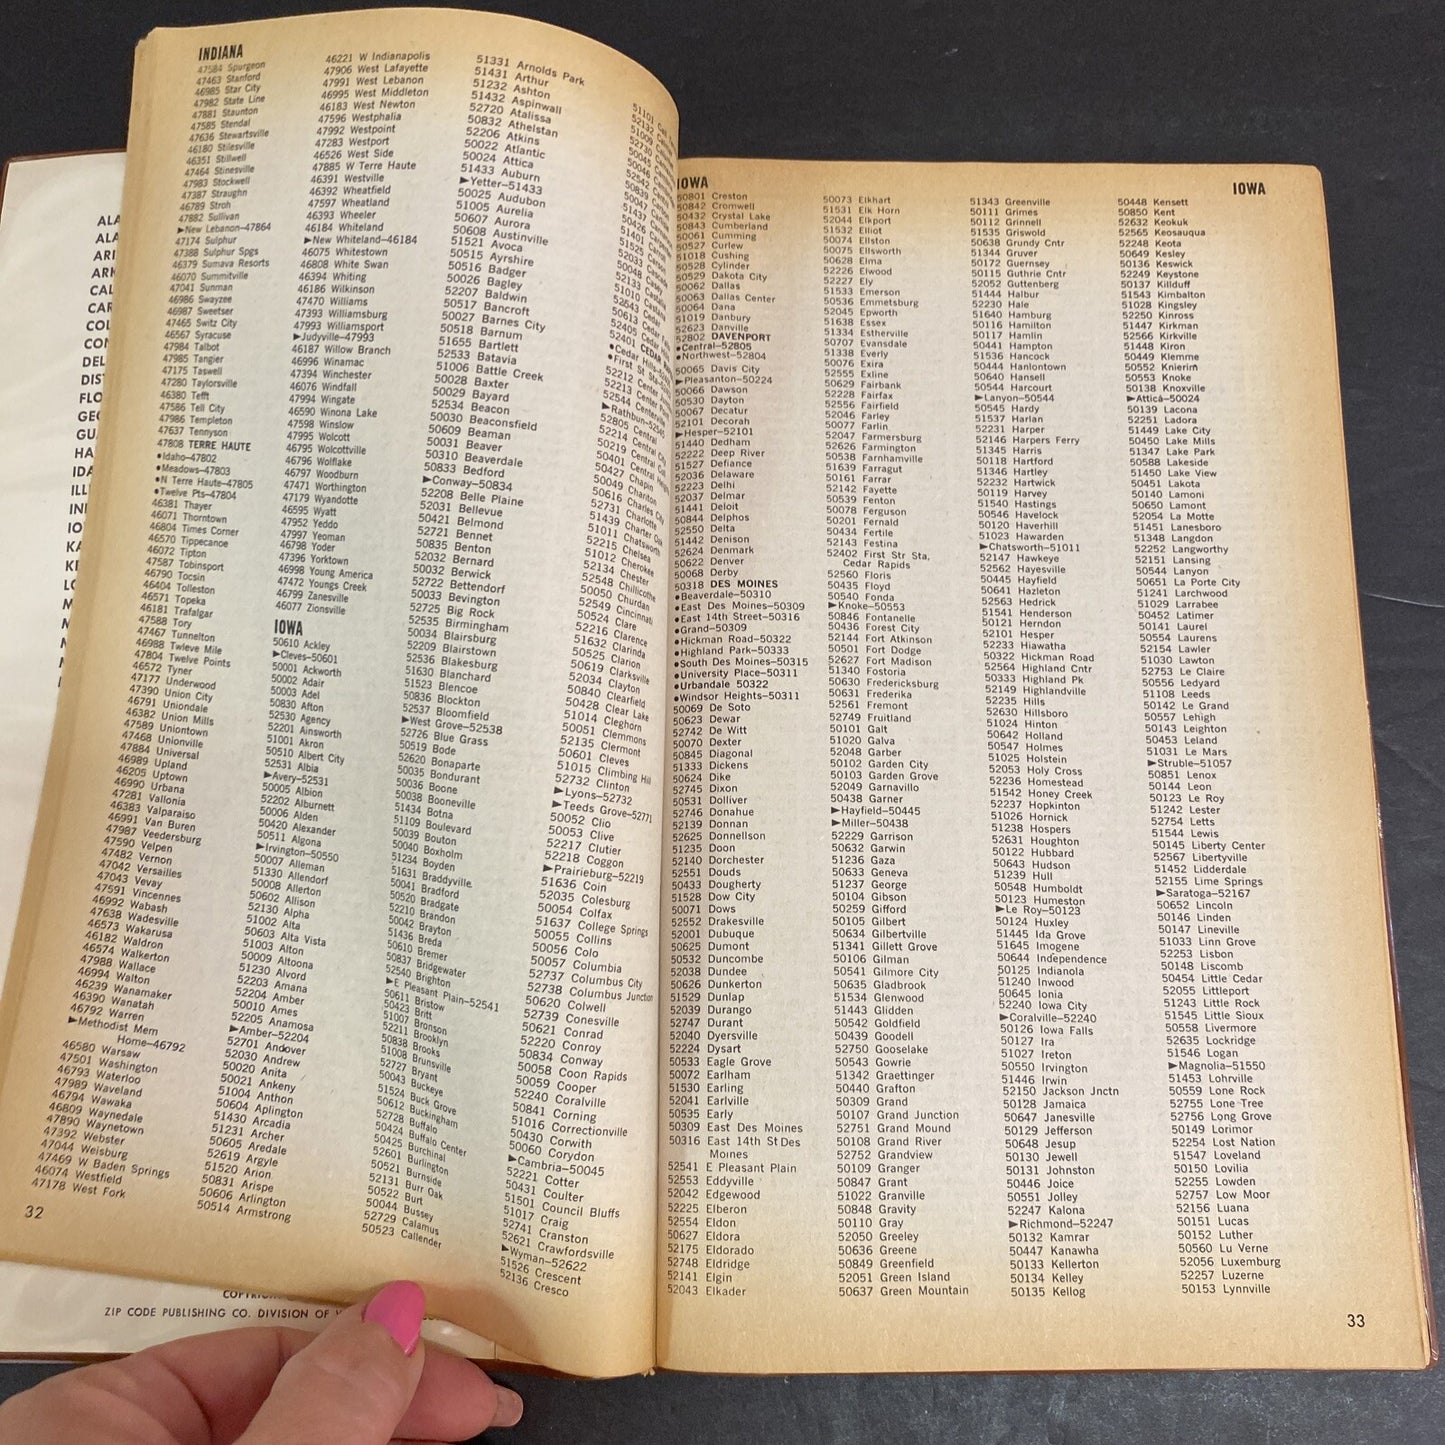 INDIANA
47584 Spurgeon
47463 Stanford
46985 Star City
47982 State Line
47881 Staunton
47585 Stendal
47636 Stewartsville
46180 Stilesville
46351 Stillwell
47464 Stinesville
47983 Stockwell
47387 Straughn
46789 Stroh
47882 Sullivan
►New Lebanon—47864
47174 Sulphur
47388 Sulphur Spgs
46379 Sumava Resorts
46070 Summitville
47041 Sunman
46986 Swayzee
46987 Sweetser
47465 Switz City
46567 Syracuse
47984 Talbot
47985 Tangier
47175 Taswell
47280 Taylorsville
46380 Tefft
47586 Tell City
47986 Templeton
47637 Tennyson
47808 TERRE HAUTE
●Idaho—47802
●Meadows—47803
●N Terre Haute—47805
●Twelve Pts—47804
46381 Thayer
46071 Thorntown
46804 Times Corner
46570 Tippecanoe
46072 Tipton
47587 Tobinsport
46790 Tocsin
46404 Tolleston
46571 Topeka
46181 Trafalgar
47588 Tory
47467 Tunnelton
46988 Twleve Mile
47804 Twelve Points
46572 Tyner
47177 Underwood
47390 Union City
46791 Uniondale
46382 Union Mills
47589 Uniontown
47468 Unionville
47884 Universal
46989 Upland
46205 Uptown
46990 Urbana
47281 Vallonia
46383 Valparaiso
46991 Van Buren
47987 Veedersburg
47590 Velpen
47482 Vernon
47042 Versailles
47043 Vevay
47591 Vincennes
46992 Wabash
47638 Wadesville
46573 Wakarusa
46182 Waldron
46574 Walkerton
47988 Wallace
46994 Walton
46239 Wanamaker
46390 Wanatah
46792 Warren
►Methodist Mem
Home—46792
46580 Warsaw
47501 Washington
46793 Waterloo
47989 Waveland
46794 Wawaka
46809 Waynedale
47890 Waynetown
47392 Webster
47044 Weisburg
47469 W Baden Springs
46074 Westfield
47178 West Fork
32
46221 W Indianapolis
47906 West Lafayette
47991 West Lebanon
46995 West Middleton
46183 West Newton
47596 Westphalia
47992 Westpoint
47283 Westport
46526 West Side
47885 W Terre Haute
46391 Westville
46392 Wheatfield
47597 Wheatland
46393 Wheeler
46184 Whiteland
►New Whiteland—46184
46075 Whitestown
46808 White Swan
46394 Whiting
46186 Wilkinson
47470 Williams
47393 Williamsburg
47993 Williamsport
►Judyville—47993
46187 Willow Branch
46996 Winamac
47394 Winchester
46076 Windfall
47994 Wingate
46590 Winona Lake
47598 Winslow
47995 Wolcott
46795 Wolcottville
46796 Wolflake
46797 Woodburn
47471 Worthington
47179 Wyandotte
46595 Wyatt
47952 Yeddo
47997 Yeoman
46798 Yoder
47396 Yorktown
46998 Young America
47472 Youngs Creek
46799 Zanesville
46077 Zionsville
IOWA
50610 Ackley
►Cleves—50601
50001 Ackworth
50002 Adair
50003 Adel
50830 Afton
52530 Agency
52201 Ainsworth
51001 Akron
50510 Albert City
52531 Albia
►Avery—52531
50005 Albion
52202 Alburnett
50006 Alden
50420 Alexander
50511 Algona
►Irvington—50550
50007 Alleman
51330 Allendorf
50008 Allerton
50602 Allison
52130 Alpha
51002 Alta
50603 Alta Vista
51003 Alton
50009 Altoona
51230 Alvord
52203 Amana
52204 Amber
50010 Ames
52205 Anamosa
►Amber—52204
52701 Andover
52030 Andrew
50020 Anita
50021 Ankeny
51004 Anthon
50604 Aplington
51430 Arcadia
51231 Archer
50605 Aredale
52619 Argyle
51520 Arion
50831 Arispe
50606 Arlington
50514 Armstrong
51331 Arnolds Park
51431 Arthur
51232 Ashton
51432 Aspinwall
52720 Atalissa
50832 Athelstan
52206 Atkins
50022 Atlantic
50024 Attica
51433 Auburn
►Yetter—51433
50025 Audubon
51005 Aurelia
50607 Aurora
50608 Austinville
51521 Avoca
50515 Ayrshire
50516 Badger
50026 Bagley
52207 Baldwin
50517 Bancroft
50027 Barnes City
50518 Barnum
51655 Bartlett
52533 Batavia
51006 Battle Creek
50028 Baxter
50029 Bayard
52534 Beacon
50030 Beaconsfield
50609 Beaman
50031 Beaver
50310 Beaverdale
50833 Bedford
►Conway—50834
52208 Belle Plaine
52031 Bellevue
50421 Belmond
52721 Bennet
50835 Benton
52032 Bernard
50032 Berwick
52722 Bettendorf
50033 Bevington
52725 Big Rock
52535 Birmingham
50034 Blairsburg
52209 Blairstown
52536 Blakesburg
51630 Blanchard
51523 Blencoe
50836 Blockton
52537 Bloomfield
►West Grove—52538
52726 Blue Grass
50519 Bode
52620 Bonaparte
50035 Bondurant
50036 Boone
50038 Booneville
51434 Botna
51109 Boulevard
50039 Bouton
50040 Boxholm
51234 Boyden
51631 Braddyville
50041 Bradford
50520 Bradgate
52210 Brandon
50042 Brayton
51436 Breda
50610 Bremer
50837 Bridgewater
52540 Brighton
►E Pleasant Plain—52541
50611 Bristow
50423 Britt
51007 Bronson
52211 Brooklyn
50838 Brooks
51008 Brunsville
52727 Bryant
50043 Buckeye
51524 Buck Grove
50612 Buckingham
52728 Buffalo
50424 Buffalo Center
50425 Burchinal
52601 Burlington
50521 Burnside
52131 Burr Oak
50522 Burt
50044 Bussey
52729 Calamus
50523 Callender
●Cedar Hills
●First St Sta
►Rathbun
52214 Central City
50401 Central Heights
50427 Chapin
50049 Chariton
50616 Charles City
52731 Charlotte
51439 Charter Oak
51011 Chatsworth
52215 Chelsea
51012 Cherokee
52134 Chester
52548 Chillicothe
50050 Churdan
52549 Cincinnati
50524 Clare
52216 Clarence
51632 Clarinda
50525 Clarion
50619 Clarksville
52034 Clayton
50840 Clearfield
50428 Clear Lake
51014 Cleghorn
50051 Clemmons
52135 Clermont
50601 Cleves
51015 Climbing Hill
52732 Clinton
►Lyons—52732
►Teeds Grove—52771
50052 Clio
50053 Clive
52217 Clutier
52218 Coggon
►Prairieburg—52219
51636 Coin
52035 Colesburg
50054 Colfax
51637 College Springs
50055 Collins
50056 Colo
50057 Columbia
52737 Columbus City
52738 Columbus Junction
50620 Colwell
52739 Conesville
50621 Conrad
52220 Conroy
50834 Conway
50058 Coon Rapids
50059 Cooper
52240 Coralville
50841 Corning
51016 Correctionville
50430 Corwith
50060 Corydon
►Cambria—50045
52221 Cotter
50431 Coulter
51501 Council Bluffs
51017 Craig
52741 Cranston
52621 Crawfordsville
►Wyman—52622
51526 Crescent
52136 Cresco
IOWA
50801 Creston
50842 Cromwell
50432 Crystal Lake
50843 Cumberland
50061 Cumming
50527 Curlew
51018 Cushing
50528 Cylinder
50529 Dakota City
50062 Dallas
50063 Dallas Center
50064 Dana
51019 Danbury
52623 Danville
52802 DAVENPORT
●Central—52805
●Northwest—52804
50065 Davis City
►Pleasanton—50224
50066 Dawson
50530 Dayton
50067 Decatur
52101 Decorah
►Hesper—52101
51440 Dedham
52222 Deep River
51527 Defiance
52036 Delaware
52223 Delhi
52037 Delmar
51441 Deloit
50844 Delphos
52550 Delta
51442 Denison
52624 Denmark
50622 Denver
50068 Derby
50318 DES MOINES
●Beaverdale—50310
●East Des Moines—50309
●East 14th Street—50316
●Grand—50309
●Hickman Road—50322
●Highland Park—50333
●South Des Moines—50315
●University Place—50311
●Urbandale 50322
●Windsor Heights—50311
50069 De Soto
50623 Dewar
52742 De Witt
50070 Dexter
50845 Diagonal
51333 Dickens
50624 Dike
52745 Dixon
50531 Dolliver
52746 Donahue
52139 Donnan
52625 Donnellson
51235 Doon
52140 Dorchester
52551 Douds
50433 Dougherty
51528 Dow City
50071 Dows
52552 Drakesville
52001 Dubuque
50625 Dumont
50532 Duncombe
52038 Dundee
50626 Dunkerton
51529 Dunlap
52039 Durango
52747 Durant
52040 Dyersville
52224 Dysart
50533 Eagle Grove
50072 Earlham
51530 Earling
52041 Earlville
50535 Early
50309 East Des Moines
50316 East 14th St Des
Moines
52541 E Pleasant Plain
52553 Eddyville
52042 Edgewood
52225 Elberon
52554 Eldon
50627 Eldora
52175 Eldorado
52748 Eldridge
52141 Elgin
52043 Elkader
50073 Elkhart
51531 Elk Horn
52044 Elkport
51532 Elliot
50074 Ellston
50075 Ellsworth
50628 Elma
52226 Elwood
52227 Ely
51533 Emerson
50536 Emmetsburg
52045 Epworth
51638 Essex
51334 Estherville
50707 Evansdale
51338 Everly
50076 Exira
52555 Exline
50629 Fairbank
52228 Fairfax
52556 Fairfield
52046 Farley
50077 Farlin
52047 Farmersburg
52626 Farmington
50538 Farnhamville
51639 Farragut
50161 Farrar
52142 Fayette
50539 Fenton
50078 Ferguson
50201 Fernald
50434 Fertile
52143 Festina
52402 First Str Sta,
Cedar Rapids
52560 Floris
50435 Floyd
50540 Fonda
►Knoke—50553
50846 Fontanelle
50436 Forest City
52144 Fort Atkinson
50501 Fort Dodge
52627 Fort Madison
51340 Fostoria
50630 Fredericksburg
50631 Frederika
52561 Fremont
52749 Fruitland
50101 Galt
51020 Galva
52048 Garber
50102 Garden City
50103 Garden Grove
52049 Garnavillo
50438 Garner
►Hayfield—50445
►Miller—50438
52229 Garrison
50632 Garwin
51236 Gaza
50633 Geneva
51237 George
50104 Gibson
50259 Gifford
50105 Gilbert
50634 Gilbertville
51341 Gillett Grove
50106 Gilman
50541 Gilmore City
50635 Gladbrook
51534 Glenwood
51443 Glidden
50542 Goldfield
50439 Goodell
52750 Gooselake
50543 Gowrie
51342 Graettinger
50440 Grafton
50309 Grand
50107 Grand Junction
52751 Grand Mound
50108 Grand River
52752 Grandview
50109 Granger
50847 Grant
51022 Granville
50848 Gravity
50110 Gray
52050 Greeley
50636 Greene
50849 Greenfield
52051 Green Island
50637 Green Mountain
51343 Greenville
50111 Grimes
50112 Grinnell
51535 Griswold
50638 Grundy Cntr
51344 Gruver
50172 Guernsey
50115 Guthrie Cntr
52052 Guttenberg
51444 Halbur
52230 Hale
51640 Hamburg
50116 Hamilton
50117 Hamlin
50441 Hampton
51536 Hancock
50444 Hanlontown
50640 Hansell
51544 Harcourt
►Lanyon—50544
50545 Hardy
51537 Harlan
52231 Harper
52146 Harpers Ferry
51345 Harris
50118 Hartford
51346 Hartley
52232 Hartwick
50119 Harvey
51540 Hastings
50546 Havelock
50120 Haverhill
51023 Hawarden
►Chatsworth—51011
52147 Hawkeye
52562 Hayesville
50445 Hayfield
50641 Hazleton
52563 Hedrick
51541 Henderson
50121 Herndon
52101 Hesper
52233 Hiawatha
50322 Hickman Road
52564 Highland Cntr
50333 Highland Pk
52149 Highlandville
52235 Hills
52630 Hillsboro
51024 Hinton
50642 Holland
50547 Holmes
51025 Holstein
52053 Holy Cross
52236 Homestead
51542 Honey Creek
52237 Hopkinton
51026 Hornick
51238 Hospers
52631 Houghton
50122 Hubbard
50643 Hudson
51239 Hull
50548 Humboldt
50123 Humeston
►Le Roy—50123
50124 Huxley
51445 Ida Grove
51645 Imogene
50644 Independence
50125 Indianola
51240 Inwood
50645 Ionia
52240 Iowa City
►Coralville—52240
50126 Iowa Falls
50127 Ira
51027 Ireton
50550 Irvington
51446 Irwin
52150 Jackson Jnctn
50128 Jamaica
50647 Janesville
50129 Jefferson
50648 Jesup
50130 Jewell
50131 Johnston
50446 Joice
50551 Jolley
52247 Kalona
►Richmond—52247
50132 Kamrar
50447 Kanawha
50133 Kellerton
50134 Kelley
50135 Kellog
IOWA
50448 Kensett
50850 Kent
52632 Keokuk
52565 Keosauqua
52248 Keota
50649 Kesley
50136 Keswick
52249 Keystone
50137 Killduff
51543 Kimbalton
51028 Kingsley
52250 Kinross
51447 Kirkman
52566 Kirkville
51448 Kiron
50449 Klemme
50552 Knierim
50553 Knoke
50138 Knoxville
►Attica—50024
50139 Lacona
52251 Ladora
51449 Lake City
50450 Lake Mills
51347 Lake Park
50588 Lakeside
51450 Lake View
50451 Lakota
50140 Lamoni
50650 Lamont
52054 La Motte
51451 Lanesboro
51348 Langdon
52252 Langworthy
52151 Lansing
50544 Lanyon
50651 La Porte City
51241 Larchwood
51029 Larrabee
50452 Latimer
50141 Laurel
50554 Laurens
52154 Lawler
51030 Lawton
52753 Le Claire
50556 Ledyard
51108 Leeds
50142 Le Grand
50557 Lehigh
50143 Leighton
50453 Leland
51031 Le Mars
►Struble—51057
50851 Lenox
50144 Leon
50123 Le Roy
51242 Lester
52754 Letts
51544 Lewis
50145 Liberty Center
52567 Libertyville
51452 Lidderdale
52155 Lime Springs
►Saratoga—52167
50652 Lincoln
50146 Linden
50147 Lineville
51033 Linn Grove
52253 Lisbon
50148 Liscomb
50454 Little Cedar
52055 Littleport
51243 Little Rock
51545 Little Sioux
50558 Livermore
52635 Lockridge
51546 Logan
►Magnolia—51550
51453 Lohrville
50559 Lone Rock
52755 Lone Tree
52756 Long Grove
50149 Lorimor
52254 Lost Nation
51547 Loveland
50150 Lovilia
52255 Lowden
52757 Low Moor
52156 Luana
50151 Lucas
50152 Luther
50560 Lu Verne
52056 Luxemburg
52257 Luzerne
50153 Lynnville
33
ZIP CODE PUBLISHING CO. DIVISION OF